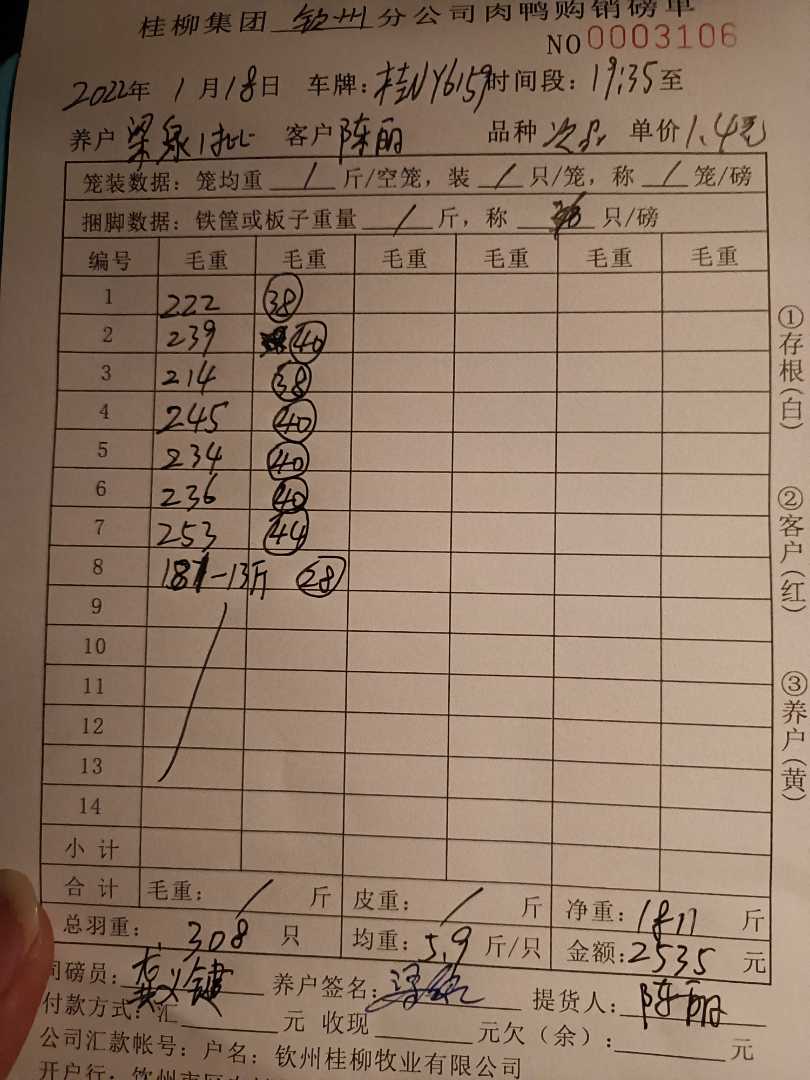 桂柳集团 钦州 分公司肉鸭购销磅单
NO 0003106
2022年 1月18日 车牌:桂NY6159 时间段:19:35至
养户 梁泉1批 客户 陈丽 品种 次品 单价 1.4元
笼装数据:笼均重 / 斤/空笼,装 / 只/笼,称 / 笼/磅
捆脚数据:铁筐或板子重量 / 斤,称 只/磅
编号 毛重 毛重 毛重 毛重 毛重 毛重
1 222 38
2 239 40
3 214 38
4 245 40
5 234 40
6 236 40
7 253 44
8 181-13斤 28
9
10
11
12
13
14
小计
合计 毛重: / 斤 皮重: / 斤 净重:1811 斤
总羽重: 308 只 均重:5.9 斤/只 金额:2535 元
司磅员: 养户签名: 提货人:陈丽
付款方式:汇 元 收现 元欠(余): 元
公司汇款帐号:户名:钦州桂柳牧业有限公司
开户行:钦州市区
①存根(白)
②客户(红)
③养户(黄)